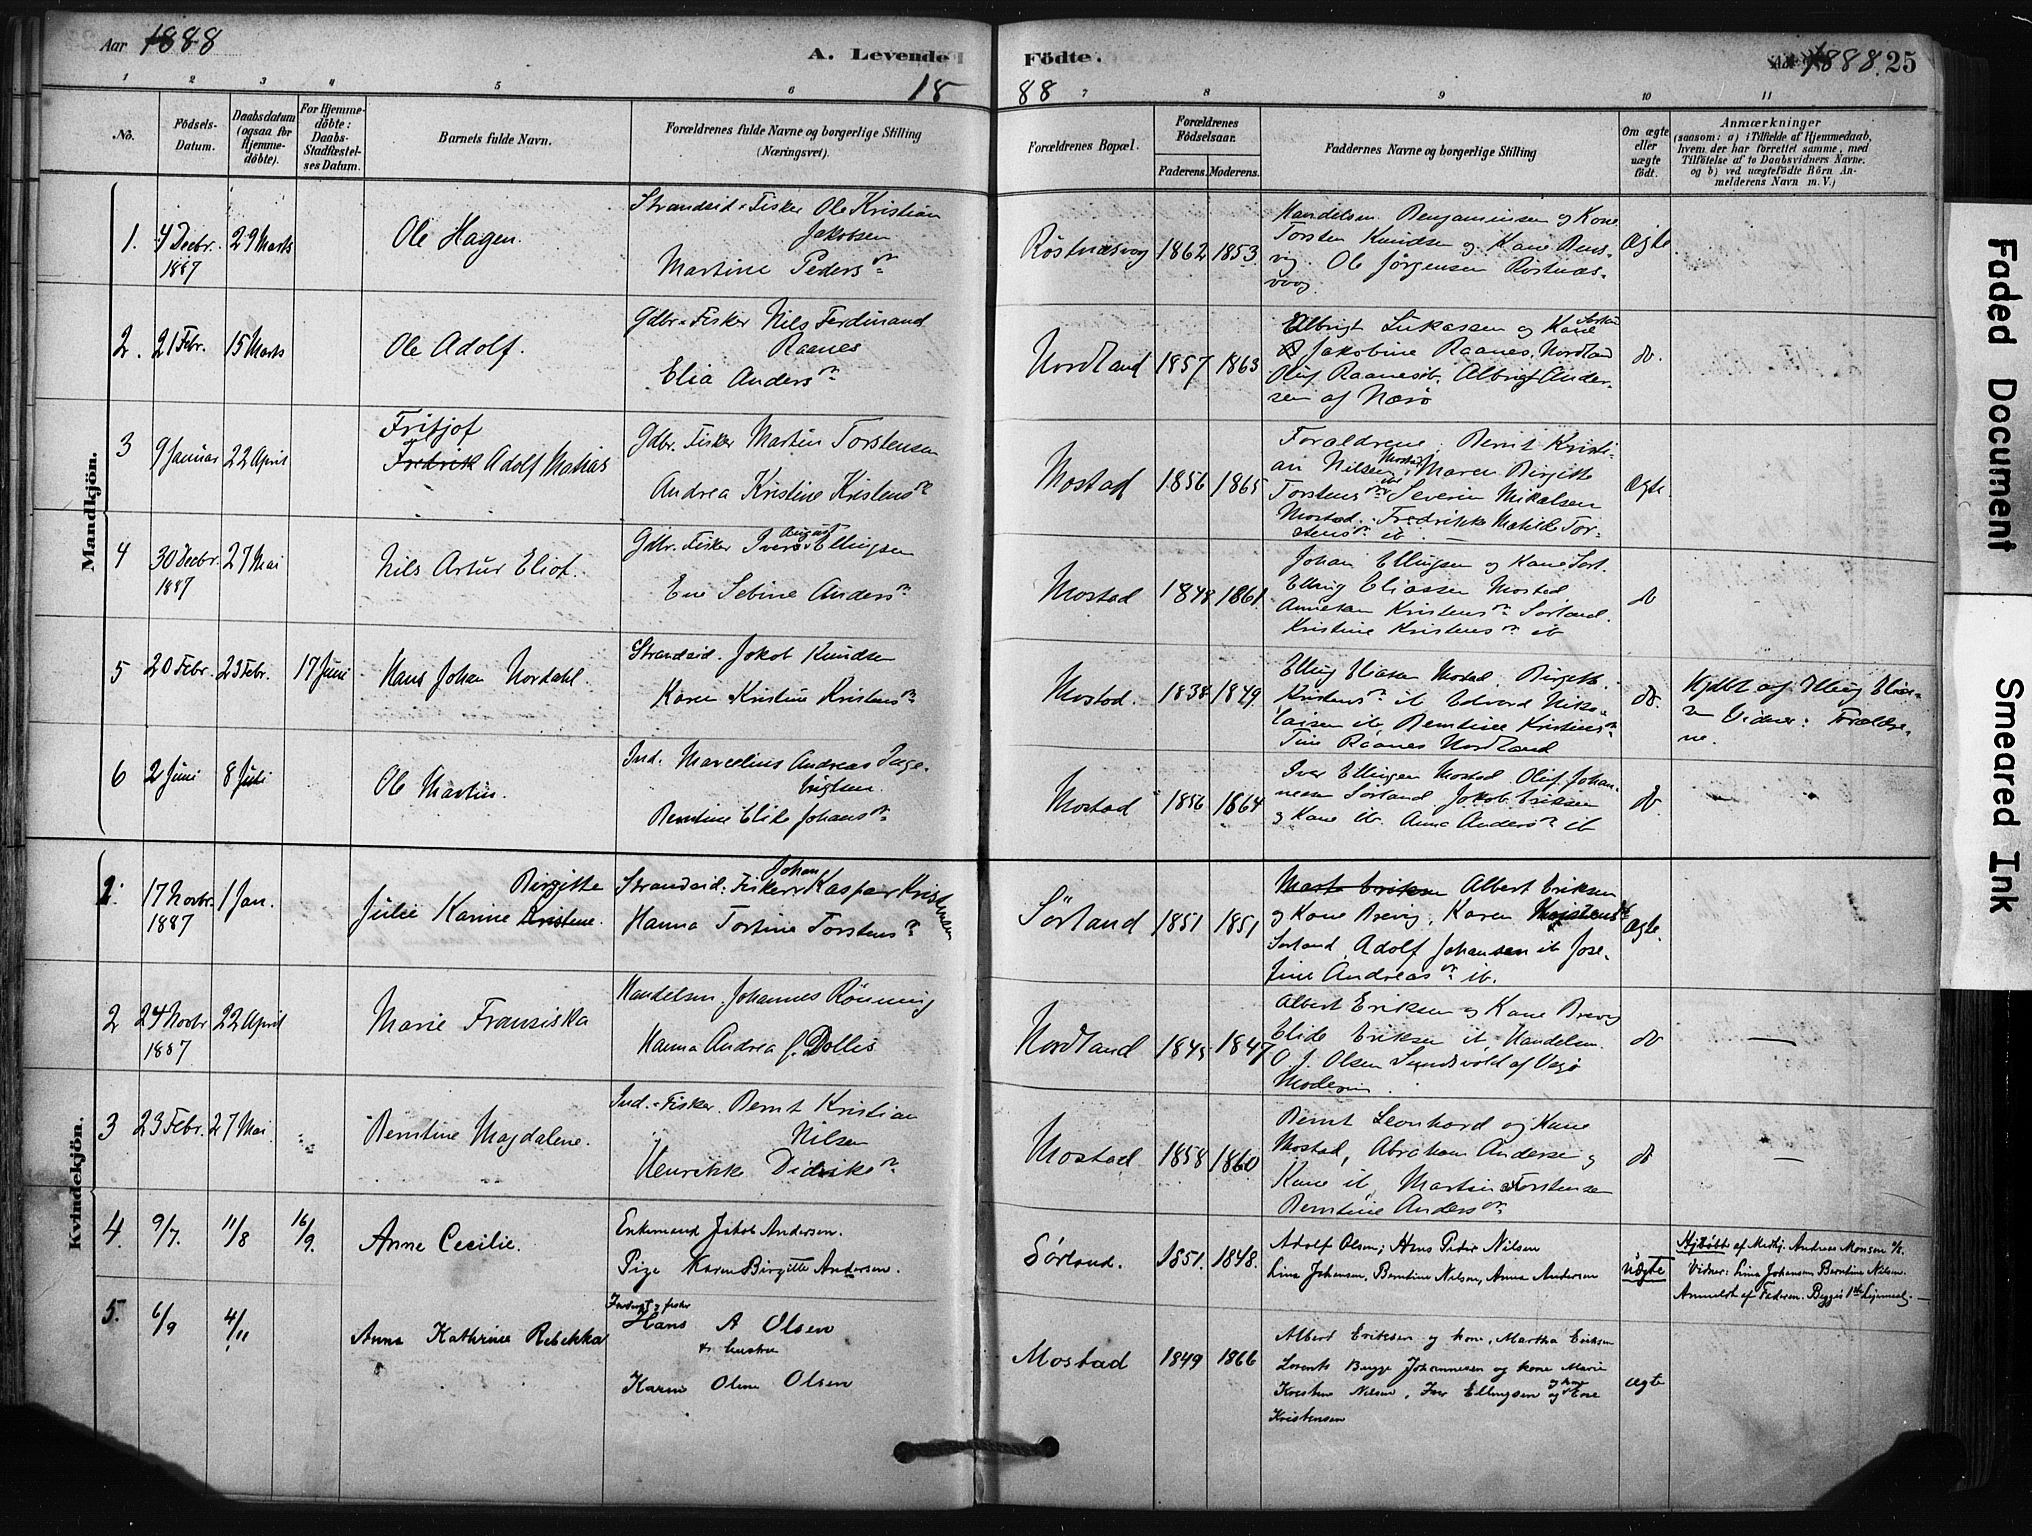 Aar 1888
A. Levende Fødte.
Aar 1888. 25
18 88
1 2 3 4 5 6 7 8 9 10 11
No.
Födsels-Datum.
Daabsdatum (ogsaa for Hjemmedöbte).
For Hjemmedöbte: Daabs-Stadfæstelses Datum.
Barnets fulde Navn.
Forældrenes fulde Navne og borgerlige Stilling (Næringsvei).
Forældrenes Bopæl.
Forældrenes Födselsaar.
Faderens. Moderens.
Faddernes Navne og borgerlige Stilling
Om ægte eller uægte födt.
Anmærkninger
(saasom: a) i Tilfælde af Hjemmedaab, hvem der har forrettet samme, med Tilföielse af to Daabsvidners Navne. og b) ved uægtefödte Börn Anmelderens Navn m. V.)
Mandkjön.
1. 4 Decbr. 1887 29 Marts Ole Hagen.
Strandsid. Fisker Ole Kristian
Jakobsen
Martine Pedersdr
Röstnæsvog 1862 1853.
Handelsm. Benjaminsen og Kone
Torsten Knudsen og Kone
Ole Jörgensen Röstnæs-
vog.
Ægte
2. 21 Febr. 15 Marts Ole Adolf.
Gdbr. Fisker Nils Ferdinand
Raanes
Elia Andersdr
Nordland 1857 1863
Albrigt Lukassen og Kone
Jakobine Raanes, Nordland
Oluf Raanes ib. Albrigt Ander-
sen af Værö
do.
3 9 Januar 22 April
Fritjof
Fredrik Adolf Matias
Gdbr. Fisker Martin Torstensen
Andrea Kristine Kristensdr
Mostad 1856 1865
Forældrene, Bernt Kristi-
an Nilsen Mostad, Maren Birgitte
Torstensdr ib. Severin Mikalsen
Mostad. Fredrikke Matilde Tor-
stensdr ib.
Ægte.
4 30 Decbr. 1887 27 Mai Nils Artur Eliot.
Gdbr. Fisker Iver August Ellingsen
Ene Sebine Andersdr
Mostad 1848 1861
Johan Ellingsen og Kone Sørl.
Elling Eliassen Mostad,
Kristensdr Sørland.
Kristine Kristensdr ib
do
5 20 Febr. 23 Febr. 17 Juni Hans Johan Nordahl.
Strandsid. Jakob Knudsen
Karen Kristine Kristensdr
Mostad. 1838 1849
Elling Eliasen Mostad Birgitte
Kristensdr ib Edvard Niko-
laisen ib Berntine Kristinesdr
Tine Raanes Nordland
do.
Hjdbt af Elling Elias-
sen Vidner: Forældre-
ne.
6 2 Juni 8 Juli Ole Martin.
Ind. Marcelius Andreas Inge-
brigtsen
Berntine Elide Johansdr
Mostad 1856 1864
Iver Ellingsen Mostad Oluf Johan-
nesen Sørland Jakob Eriksen
og Kone ib. Anna Andersdr ib
do.
Kvindekjön.
1. 17 Novbr. 1887 1 Jan.
Birgitte
Julie Karine Kristene.
Johan
Strandsid. Fisker Kaspar Kristensen
Hanna Tortine Torstensdr
Sørland 1851 1851
Marta Eriksen Albert Eriksen
og Kone Brevig, Karen Kristensdr
Sørland, Adolf Johansen ib Jose-
fine Andreasdr ib.
Ægte.
2 24 Novbr 1887 22 April Marie Fransiska
Handelsm. Johannes Rönning
Hanna Andrea f. Dollis
Nordland 1845 1847
Albert Eriksen og Kone Brevig
Elide Eriksen ib, Handelsm.
O. J. Olsen Sundsvold af Vegö
Moderen
do
3 23 Febr. 27 Mai. Berntine Magdalene.
Ind. Fisker. Bernt Kristian
Nilsen
Henrikke Didriksdr
Mostad 1858 1860
Bernt Leonhard og Kone
Mostad, Abraham Andersen og
Kone ib, Martin Torstensen
Berntine Andersdr
do
4. 9/7. 11/8 16/9. Anne Cecilie.
Enkemand Jakob Andersen.
Pige Karen Birgitte Andersen.
Sørland. 1851. 1848.
Adolf Olsen; Hans Peder Nilsen
Lina Johansen, Berntine Nilsen, Anna Andersen
uægte
Hjdöbt af Andreas Monsen
Vidner: Lina Johansen Berntine Nilsen.
Anmeldt af Faderen. Begges 1ste Leiermaal.
5. 6/9 4/11 Anna Kathrine Rebekka
Inderst og fisker
Hans A Olsen
& hustru
Karen Oline Olsen
Mostad 1849 1866
Albert Eriksen og kone, Martha Eriksen
Lorents Bugge Johannesen og kone Marie
Kristine Nilsen, Iver Ellingsen og kone og Ene
Kristensen
ægte
Faded Document
Smeared Ink